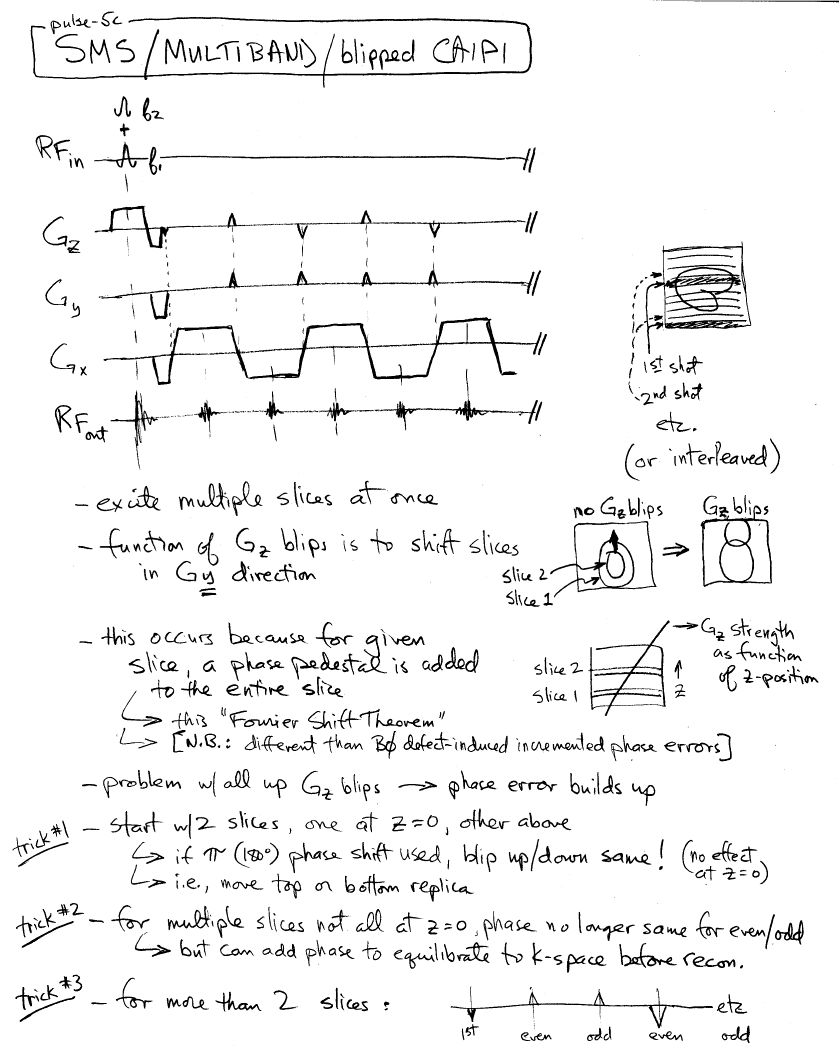 pulse-5c
SMS/MULTIBAND/blipped CAIPI
f2
+
RFin
f1
Gz
Gy
Gx
RFout
1st shot
2nd shot
etc.
(or interleaved)
- excite multiple slices at once
- function of Gz blips is to shift slices
in Gy direction
no Gz blips
Gz blips
⇒
slice 2
slice 1
- this occurs because for given
slice, a phase pedestal is added
to the entire slice
↳ this "Fourier Shift Theorem"
↳ [N.B.: different than BØ defect-induced incremented phase errors]
→ Gz strength
as function
of z-position
slice 2
slice 1
↑
z
- problem w/ all up Gz blips → phase error builds up
trick #1 - start w/2 slices, one at z=0, other above
↳ if π (180°) phase shift used, blip up/down same! (no effect
at z=0)
↳ i.e., move top or bottom replica
trick #2 - for multiple slices not all at z=0, phase no longer same for even/odd
↳ but can add phase to equilibrate to k-space before recon.
trick #3 - for more than 2 slices :
etc
1st even odd even odd